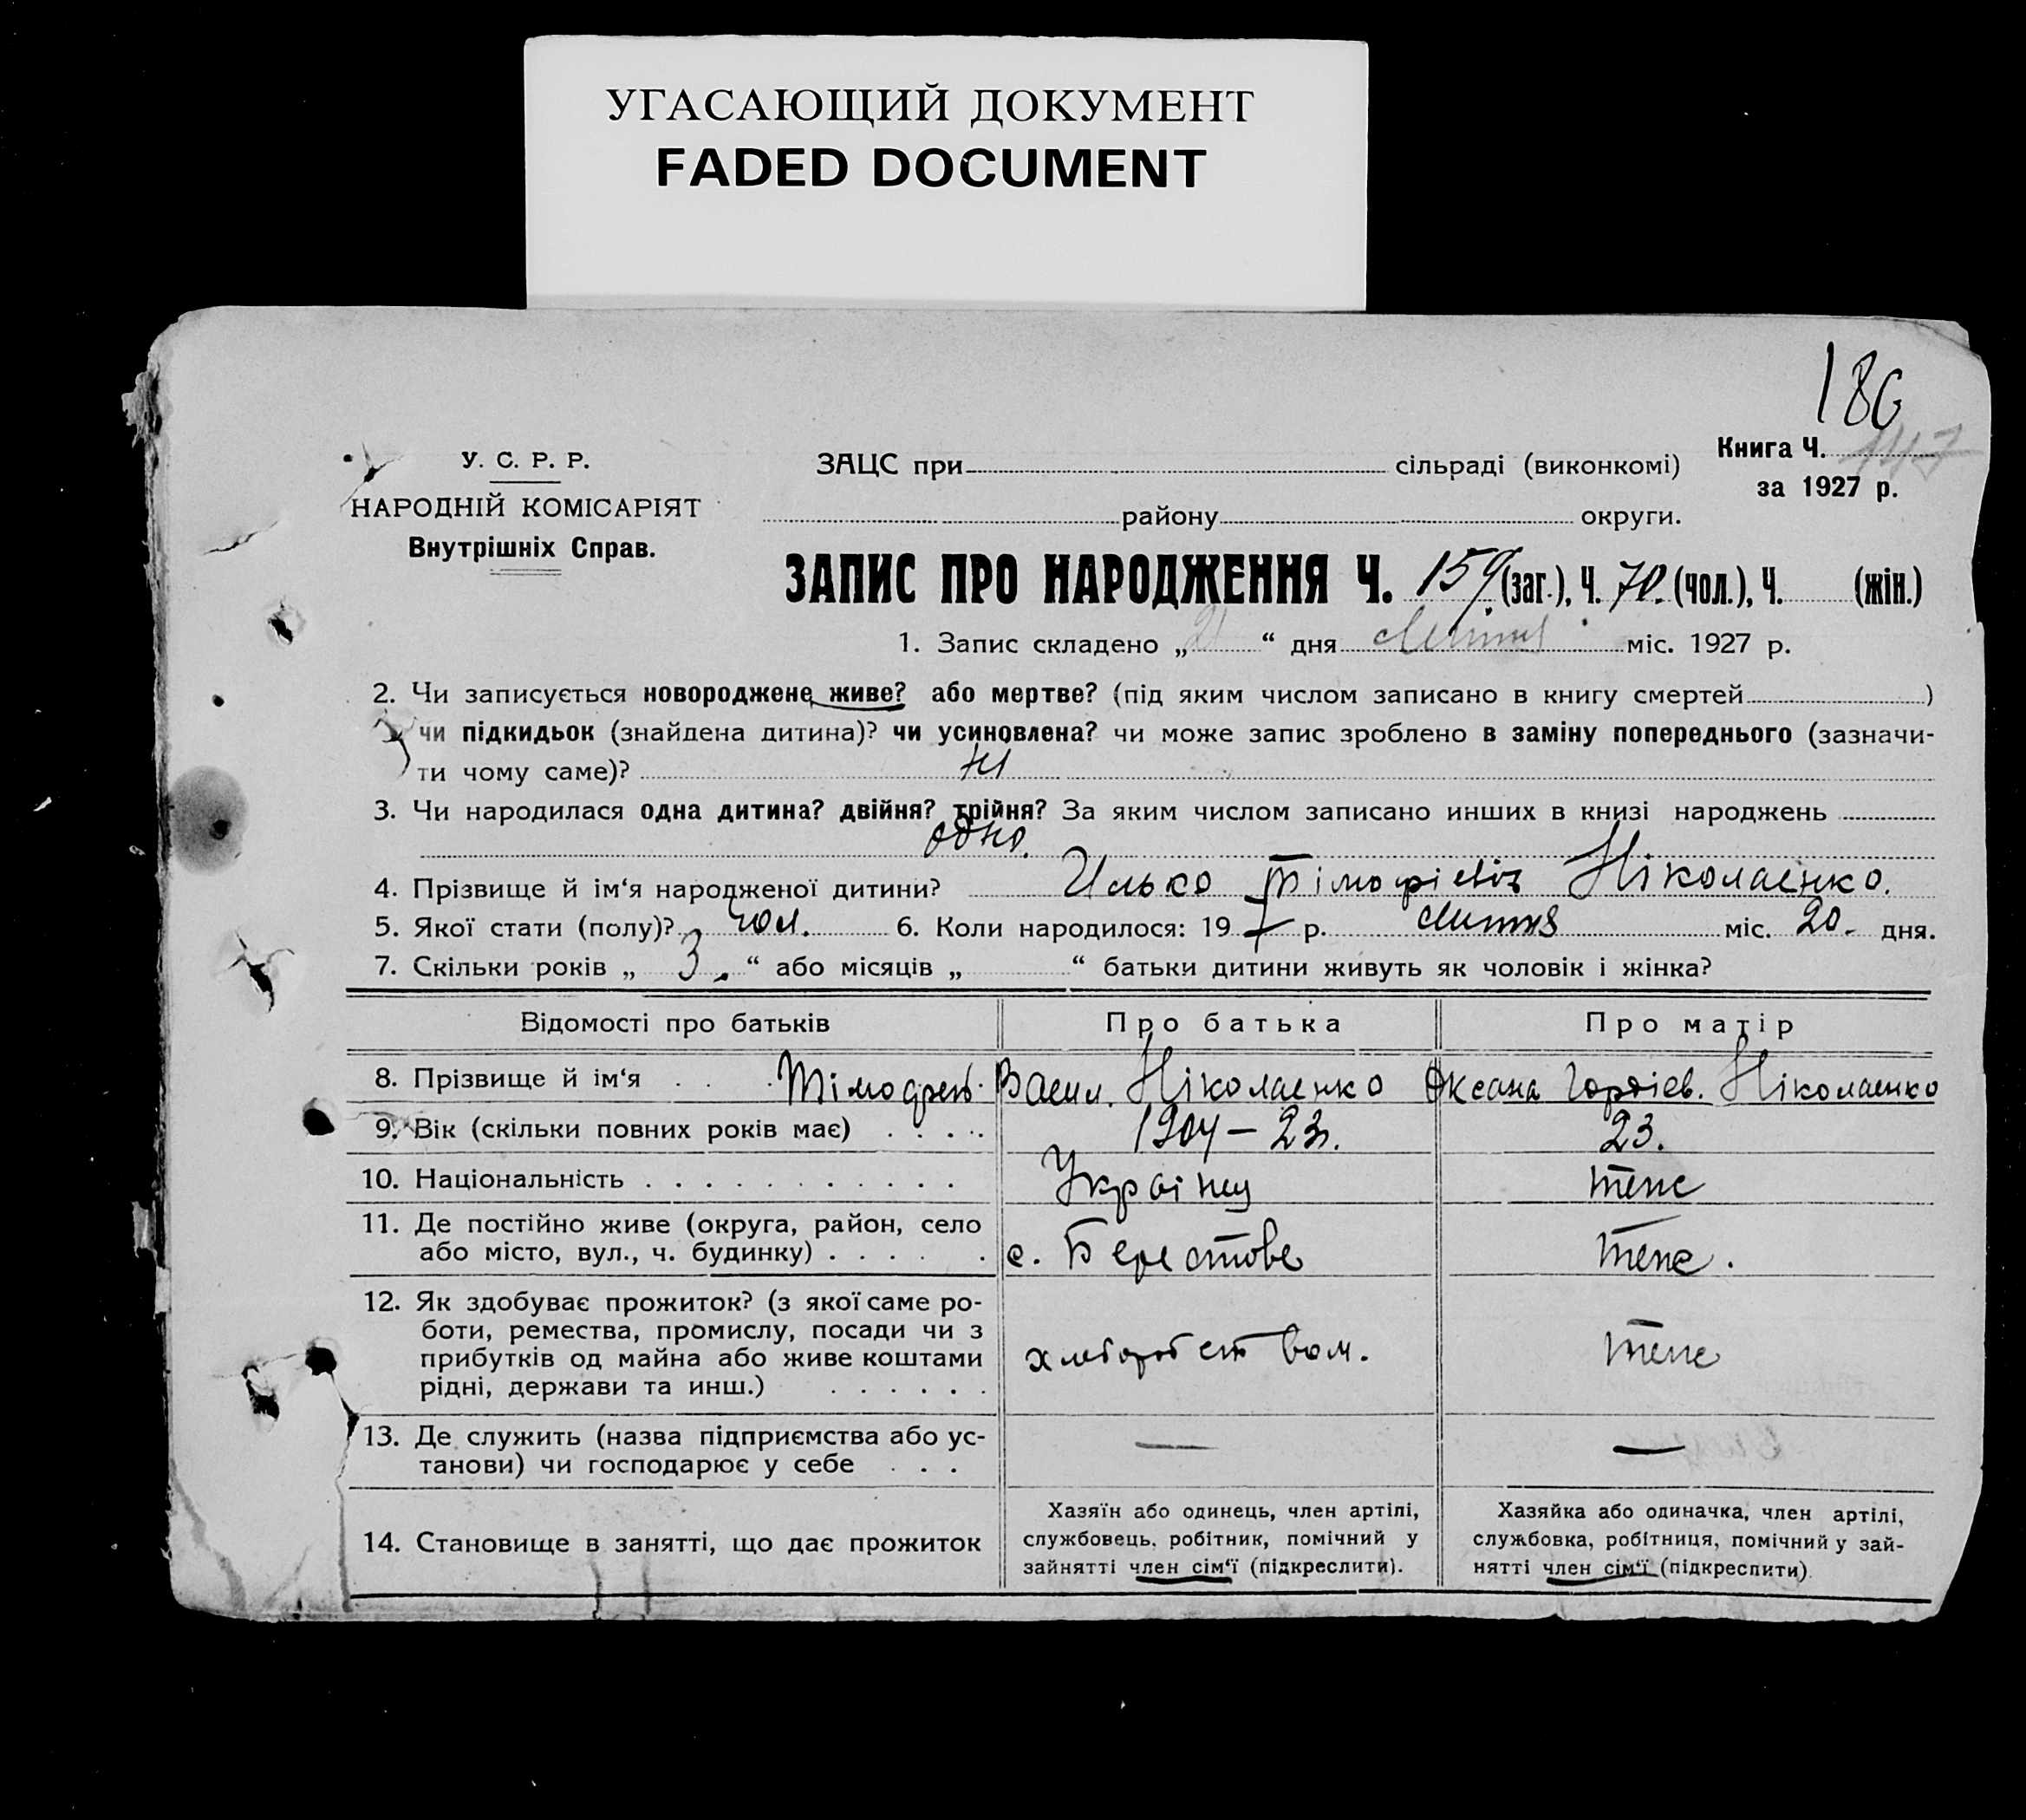 УГАСАЮЩИЙ ДОКУМЕНТ
FADED DOCUMENT
186
У. С. Р. Р.
НАРОДНІЙ КОМІСАРІЯТ
Внутрішніх Справ.
ЗАЦС при сільраді (виконкомі)
Книга Ч. 147
за 1927 р.
району округи.
ЗАПИС ПРО НАРОДЖЕННЯ Ч. 159 (заг.), Ч. 70. (чол.), Ч. (жін.)
1. Запис складено „21“ дня міс. 1927 р.
2. Чи записується новороджене живе? або мертве? (під яким числом записано в книгу смертей )
чи підкидьок (знайдена дитина)? чи усиновлена? чи може запис зроблено в заміну попереднього (зазначи-
ти чому саме)? ні
3. Чи народилася одна дитина? двійня? трійня? За яким числом записано инших в книзі народжень
одно.
4. Прізвище й ім‘я народженої дитини? Илько Тімофієвіч Ніколаєнко.
5. Якої стати (полу)? чол. 6. Коли народилося: 197 р. міс. 20. дня.
7. Скільки років „ 3. “ або місяців „ “ батьки дитини живуть як чоловік і жінка?
Відомості про батьків Про батька Про матір
8. Прізвище й ім‘я . . . Тімофей Васил. Ніколаенко Оксана Гордіев. Ніколаенко
9. Вік (скільки повних років має) . . . . 1904 – 23. 23.
10. Національність . . . . . . . . . . . Українц теж
11. Де постійно живе (округа, район, село
або місто, вул., ч. будинку) . . . . . с. Берестове теж.
12. Як здобуває прожиток? (з якої саме ро-
боти, ремества, промислу, посади чи з
прибутків од майна або живе коштами
рідні, держави та инш.) . . . . . . хліборобством. теж
13. Де служить (назва підприємства або ус-
танови) чи господарює у себе . . . — —
14. Становище в занятті, що дає прожиток
Хазяїн або одинець, член артілі,
службовець, робітник, помічний у
зайнятті член сім‘ї (підкреслити).
Хазяйка або одиначка, член артілі,
службовка, робітниця, помічний у зай-
нятті член сім‘ї (підкреслити)